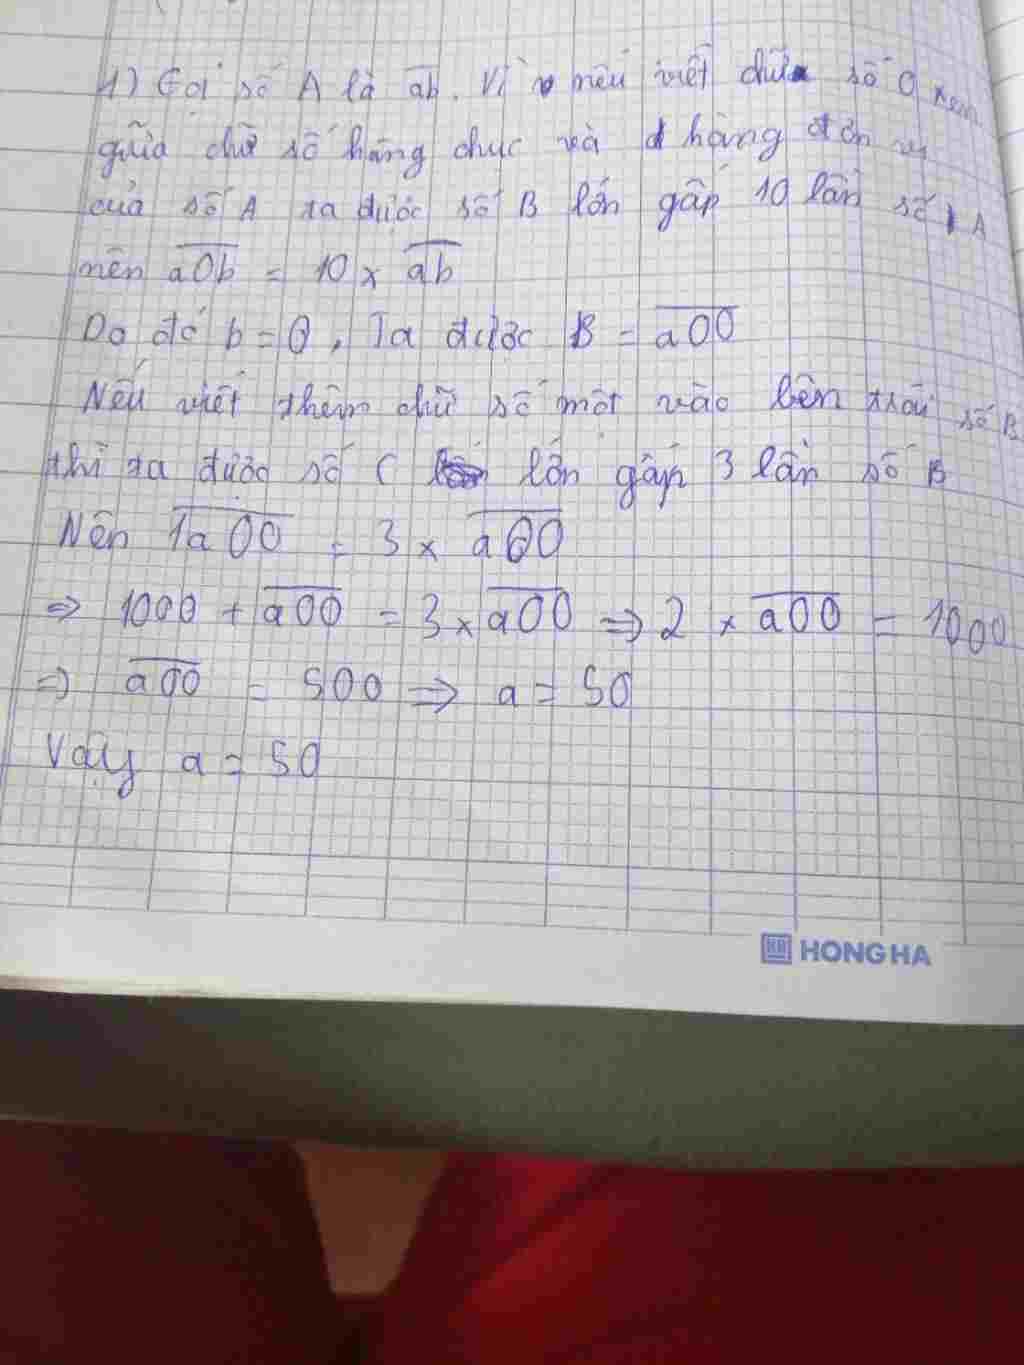 1) Gọi số A là ab. Vì nếu viết chữ số 0 xen
giữa chữ số hàng chục và hàng đơn vị
của số A ta được số B lớn gấp 10 lần số A
nên a0b = 10 x ab
Do đó b = 0, Ta được B = a00
Nếu viết thêm chữ số một vào bên trái số B
thì ta được số C lớn gấp 3 lần số B
Nên 1a00 = 3 x a00
⇒ 1000 + a00 = 3 x a00 ⇒ 2 x a00 = 1000
⇒ a00 = 500 ⇒ a = 50
Vậy a = 50
HONG HA